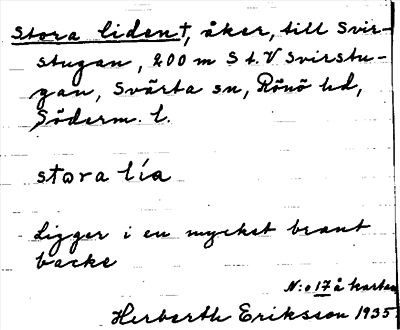 Stora liden†, åker, till Svir-
stugan, 200 m S t. V Svirstu-
gan, Svärta sn, Rönö hd,
Söderm. l.
stora lía
Ligger i en mycket brant
backe
N:o 17 å kartan
Herberth Eriksson 1935.